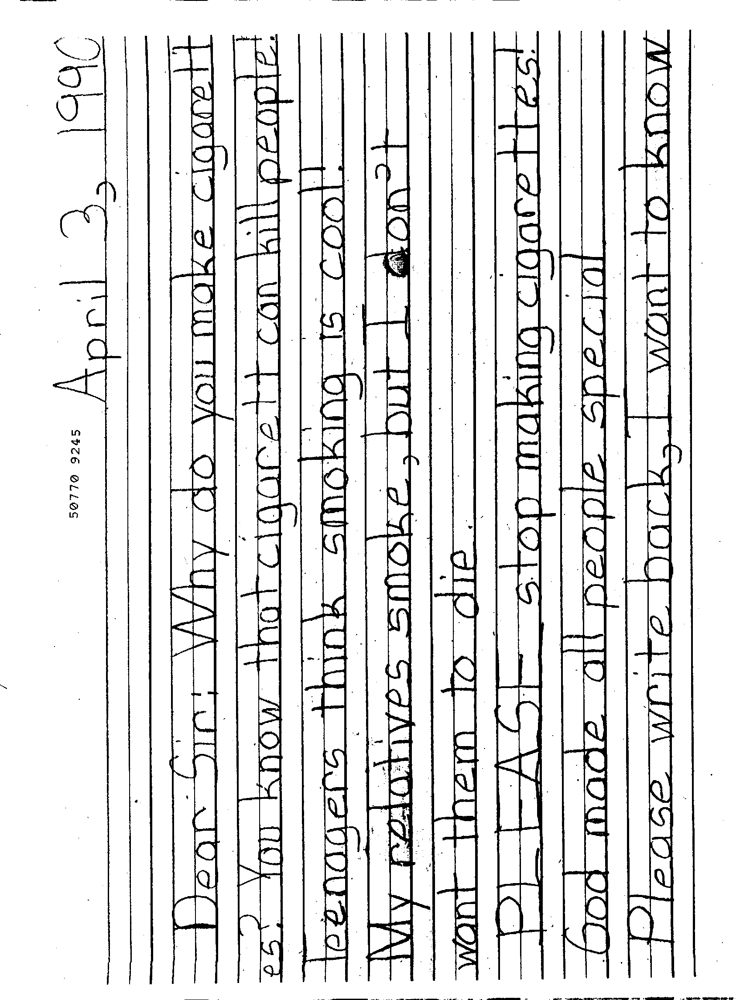 April 3, 1990
50770 9245
Dear Sir; Why do you make cigarett
es? You know that cigarett can kill people!
Teenagers think smoking is cool!
My relatives smoke, but I don't
want them to die.
PLEASE stop making cigarettes!
God made all people special
Please write back, I want to know